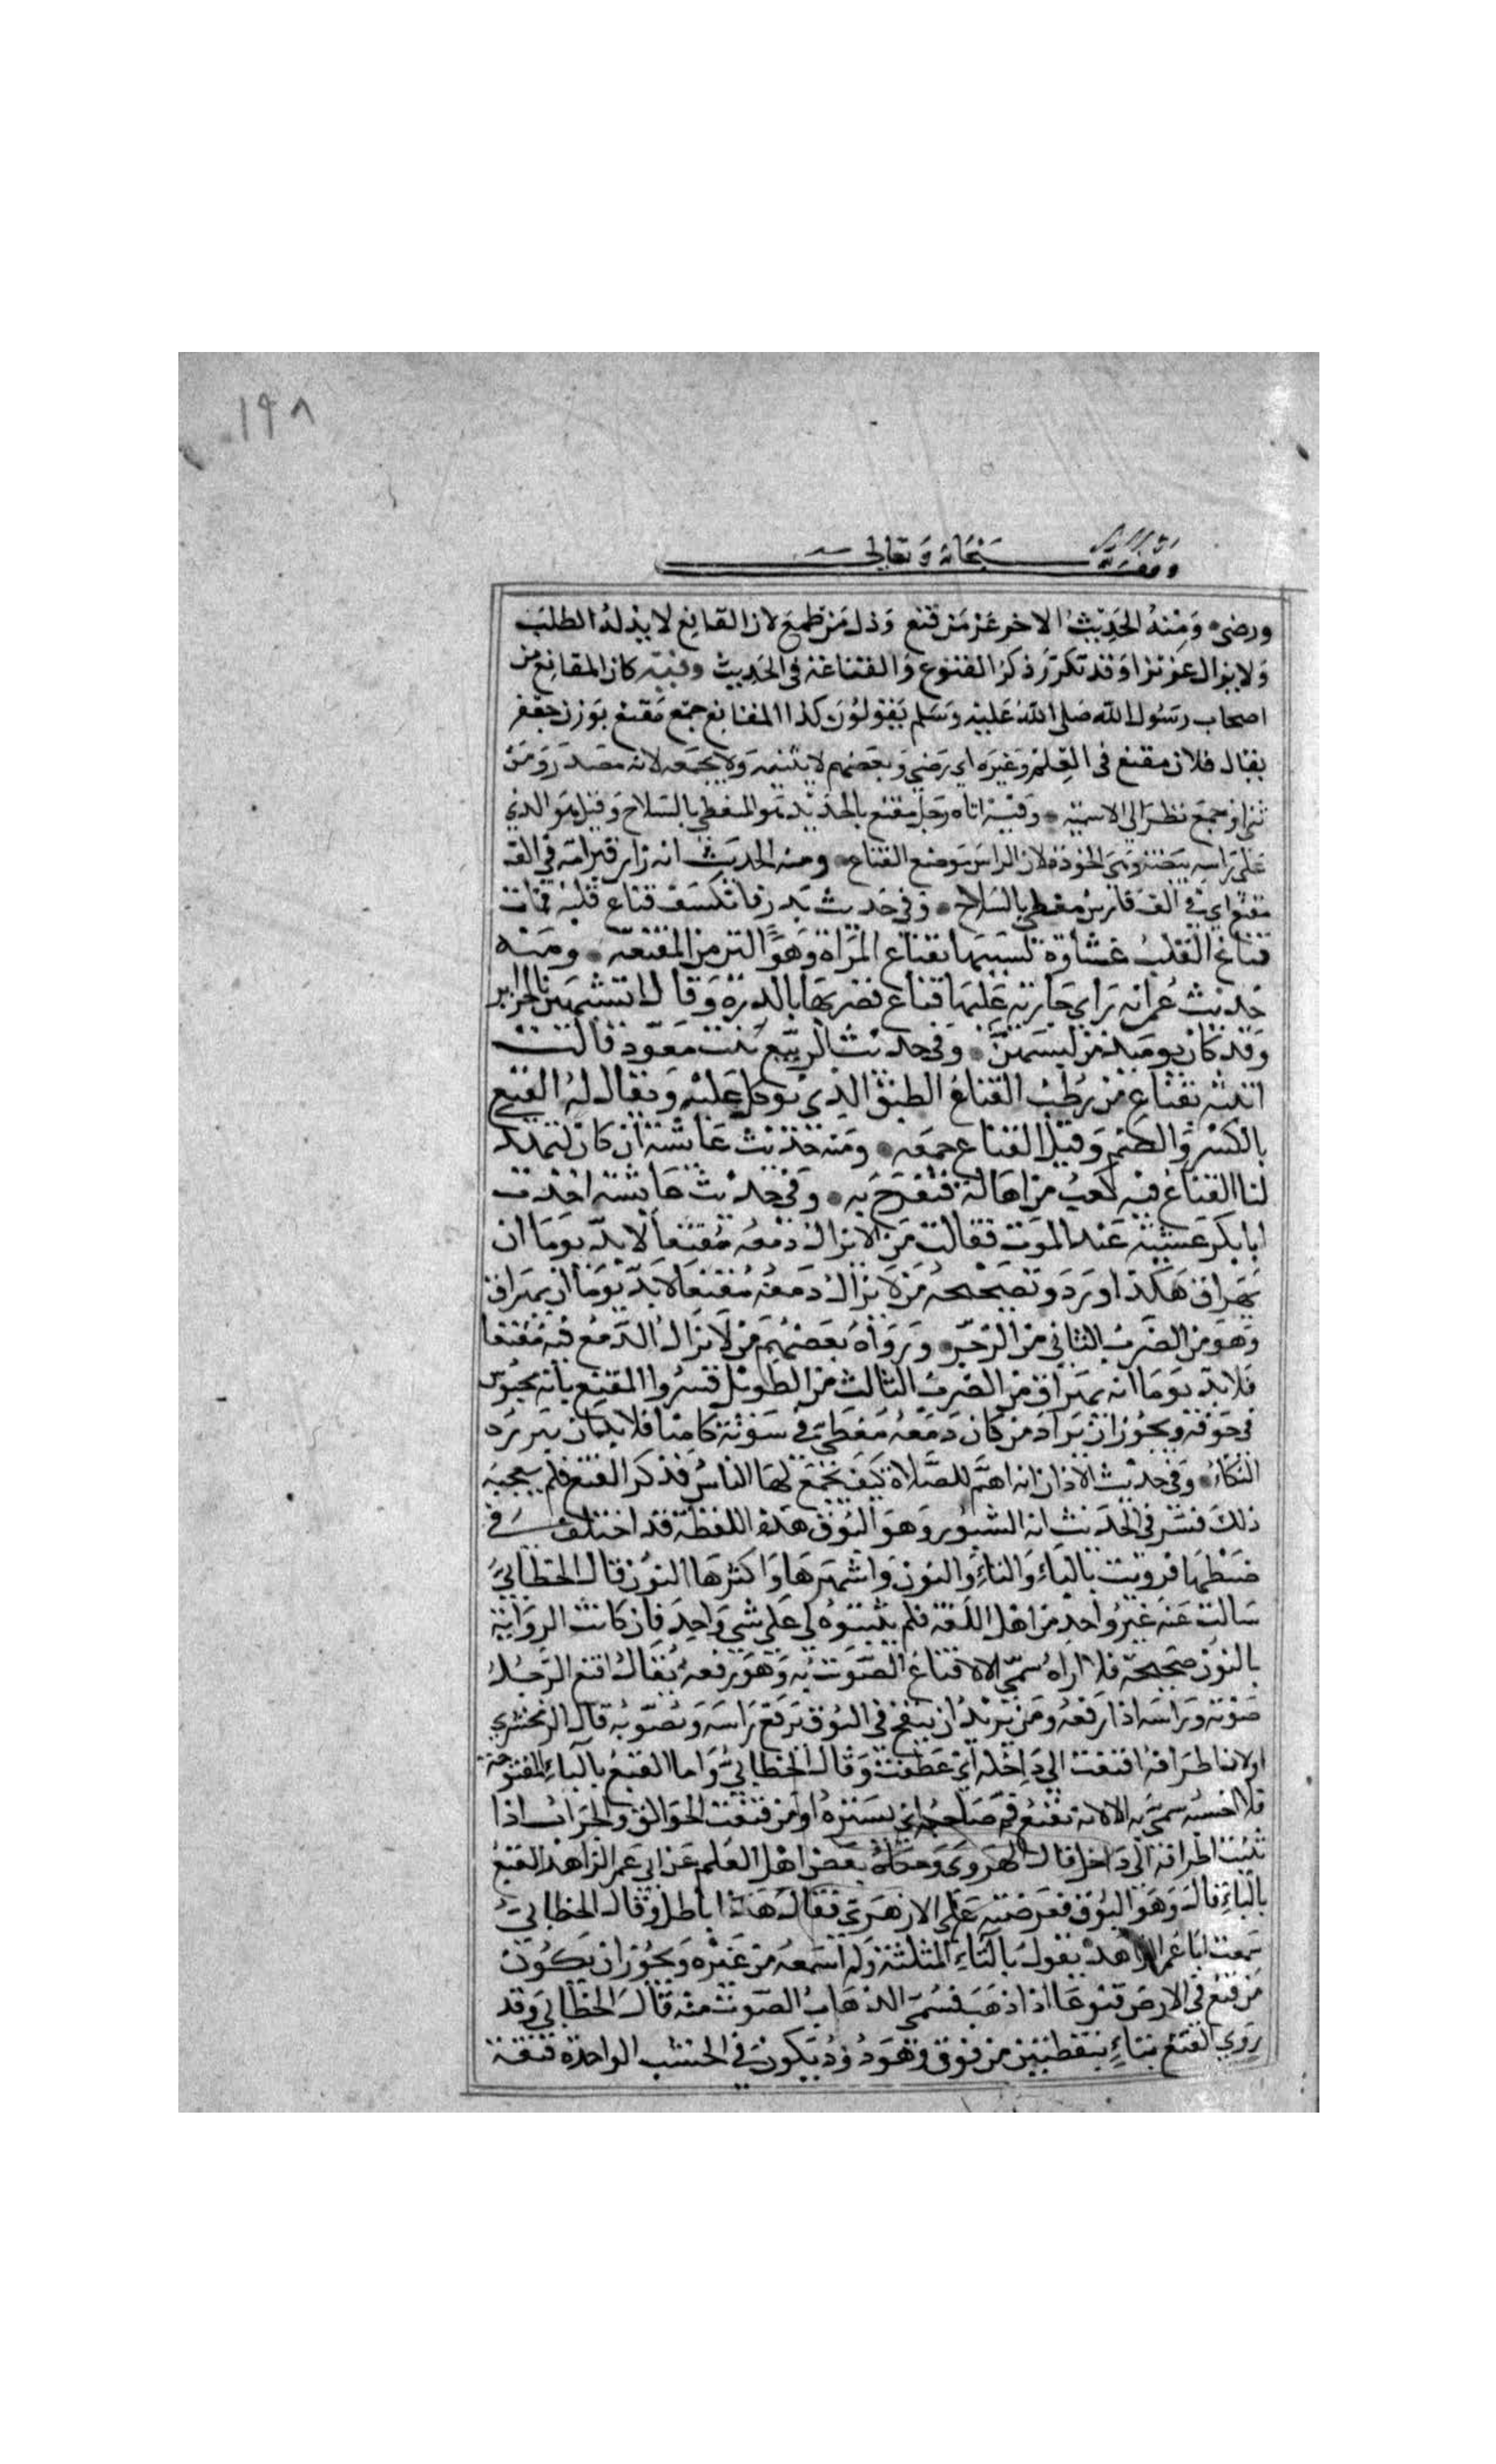 ١٩٨
وقف لله سبحانه وتعالى
ورضى ومنه الحديث الاخر عز من قنع وذل من طمع لان القانع لا يذله الطلب
ولا يزال عزيزا وقد تكرر ذكر القنوع والقناعة فى الحديث وفيه كان المقانع من
اصحاب رسول الله صلى الله عليه وسلم يقولون كذا المقانع جمع مقنع بوزن جعفر
يقال فلان مقنع فى العلم وغيره اي رضي وبعضهم لا يثنيه ولا يجمعه لانه مصدر ومن
ثنى او جمع نظر الى الاسمية وفيه اتاه رجل مقنع بالحديد هو المغطي بالسلاح وقيل هو الذي
على راسه بيضة وهى الخوذة لان الراس موضع القناع ومنه الحديث انه زار قبر امه فى الف
مقنع اي فى الف فارس مغطي بالسلاح وفى حديث بدر فانكشف قناع قلبه فمات
قناع القلب غشاوة تشبيها بقناع المراة وهو اكبر من المقنعة ومنه
حديث عمر انه راي جارية عليها قناع فضربها بالدرة وقال اتتشبهين بالحراير
وقد كان يوميذ من لبسهن وفى حديث الربيع بنت معوذ قالت
اتيته بقناع من رطب القناع الطبق الذي يوكل عليه ويقال له القنع
بالكسر والضم وقيل القناع جمعه ومنه حديث عايشة ان كان ليهدى
لنا القناع فيه كعب من اهالة فنفرح به وفى حديث عايشة اخذت
ابا بكر غشية عند الموت فقالت من لا يزال دمعه مقنعا لا بد يوما ان
يهراق هكذا ورد وتصحيحه من لا يزال دمعه مقنعا لا بد يوما ان يهراق
وهو من الضرب الثاني من الرجز ورواه بعضهم من لا يزال الدمع فيه مقنعا
فلا بد يوما انه يهراق من الضرب الثالث من الطويل فسروا المقنع بانه محبوس
فى جوفه ويجوز ان يراد من كان دمعه مغطى فى شونه كامنا فلا بد ان يبرزه
البكاء وفى حديث الاذان انه اهتم للصلاة كيف يجمع لها الناس فذكر القنع فلم يعجبه
ذلك فسر فى الحديث انه الشبور وهو البوق هذه اللفظة قد اختلف فى
ضبطها فرويت بالباء والتاء والنون واشهرها واكثرها النون قال الخطابي
سالت عنه غير واحد من اهل اللغة فلم يثبتوه لي على شي واحد فان كانت الرواية
بالنون صحيحة فلا اراه سمي الا لاقناع الصوت به وهو رفعه يقال اقنع الرجل
صوته وراسه اذا رفعه ومن يريد ان ينفخ فى البوق يرفع راسه وصوته قال الزمخشري
اولان اطرافه اقنعت الى داخله اي عطفت وقال الخطابي واما القبع بالباء المفتوحة
فلا احسبه سمي به الا لانه يقبع فم صاحبه اي يستره او من قبعت الجوالق والجراب اذا
ثنيت اطرافه الى داخل قال الهروي وحكاه بعض اهل العلم عن ابي عمر الزاهد القبع
بالباء قال وهو البوق فعرضته على الازهري فقال هذا باطل وقال الخطابي
سمعت ابا عمر الزاهد يقول بالثاء المثلثة ولم اسمعه من غيره ويجوز ان يكون
من قنع فى الارض قنوعا اذا ذهب فسمى لذهاب الصوت منه قال الخطابي وقد
روي القتع بتاء بنقطتين من فوق وهو دود يكون فى الخشب الواحدة قتعة